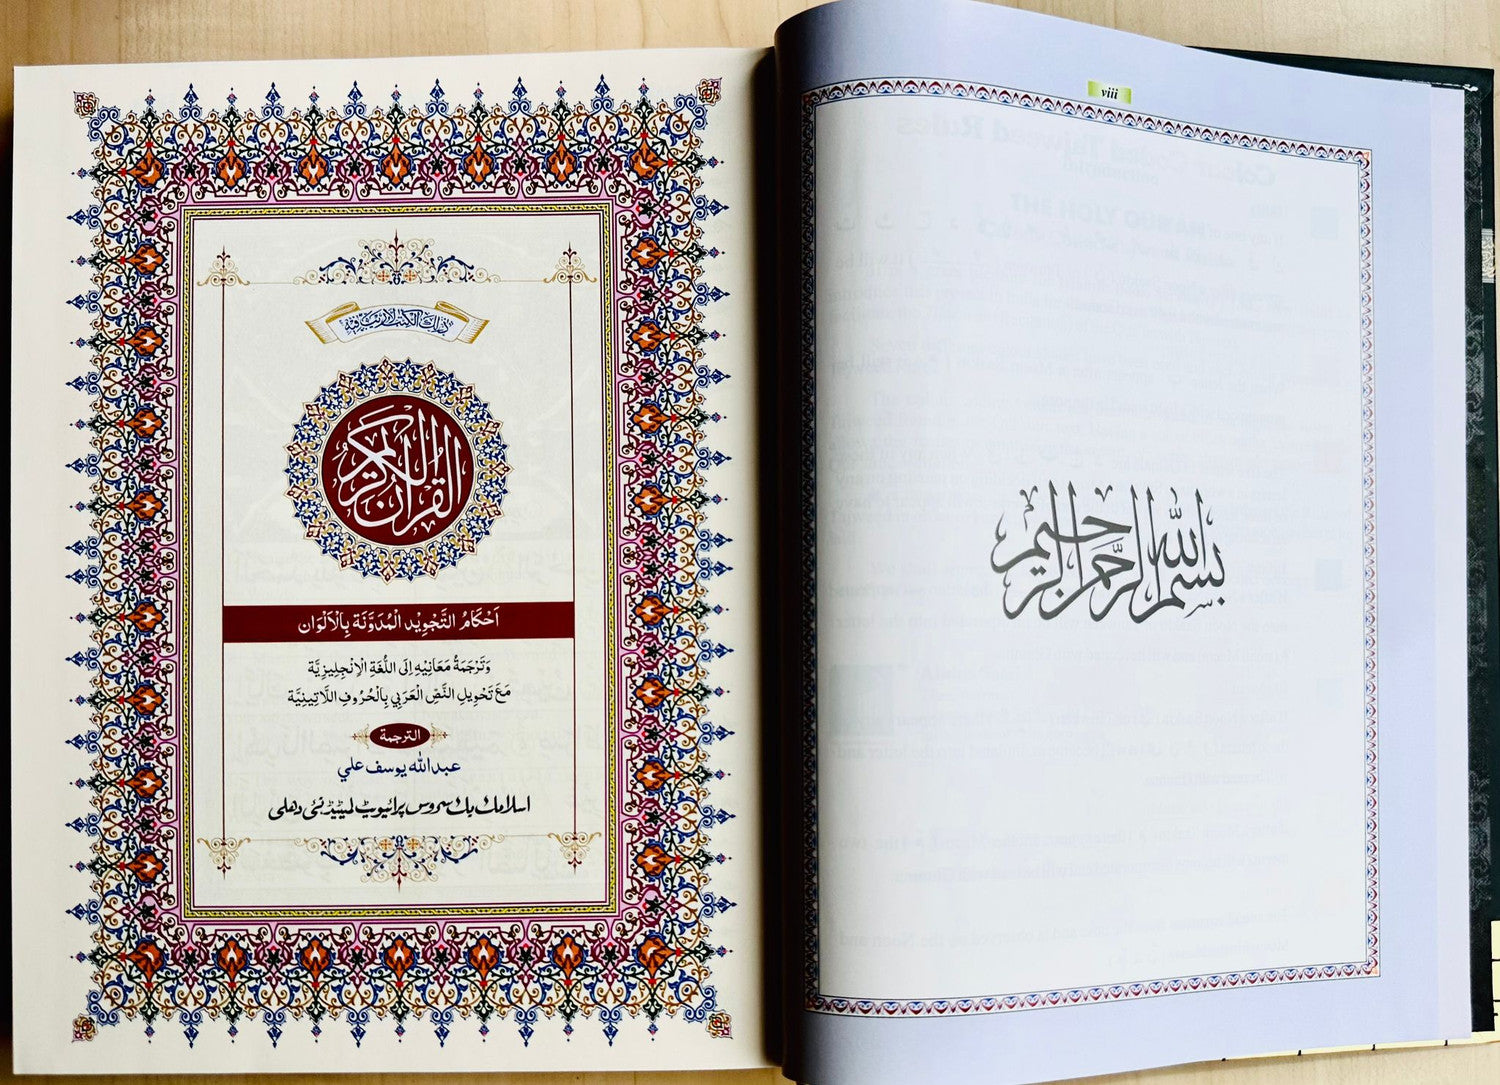 ذلك الكتب لا ريب فيه
القرآن الكريم
اَحْكَامُ التَّجْوِيْد الْمُدَوَّنَة بِالْاَلْوَان
وَتَرْجَمَةُ مَعَانِيْهِ اِلَى اللُّغَةِ الْاِنْجلِيزِيَّة
مَعَ تَحْوِيلِ النَّصِّ الْعَرَبِي بِالْحُرُوفِ اللَّاتِينِيَّة
الترجمة
عبدالله يوسف علي
اسلامك بك سروس پرائیویٹ لمیٹیڈ نئی دهلی
viii
بسم الله الرحمن الرحيم